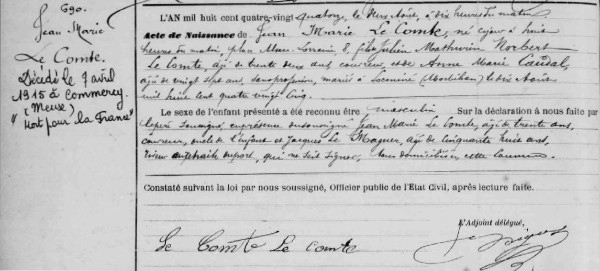 690.
Jean Marie
Le Comte.
Décédé le 7 avril
1915 à Commercy
(Meuse)
"Mort pour la France"
L'AN mil huit cent quatre-vingt quatorze, le Août, à dix heures du matin
Acte de Naissance de Jean Marie Le Comte, né ce jour à huit
heures du matin, place 8, fils de Julien Mathurin Norbert
Le Comte, âgé de trente deux ans, couvreur, et de Anne Marie
âgée de vingt sept ans, sans profession, mariés à Locminé (Morbihan) le dix
mil huit cent quatre vingt cinq.
Le sexe de l'enfant présenté a été reconnu être masculin Sur la déclaration à nous faite par
le père soussigné, en présence du soussigné Jean Marie Le Comte, âgé de trente ans,
couvreur, oncle de l'enfant et Jacques Le Maguer, âgé de cinquante huit ans,
en retraite du port, qui ne sait signer, tous domiciliés en cette Commune.
Constaté suivant la loi par nous soussigné, Officier public de l'État Civil, après lecture faite.
L'Adjoint délégué,
Le Comte Le comte